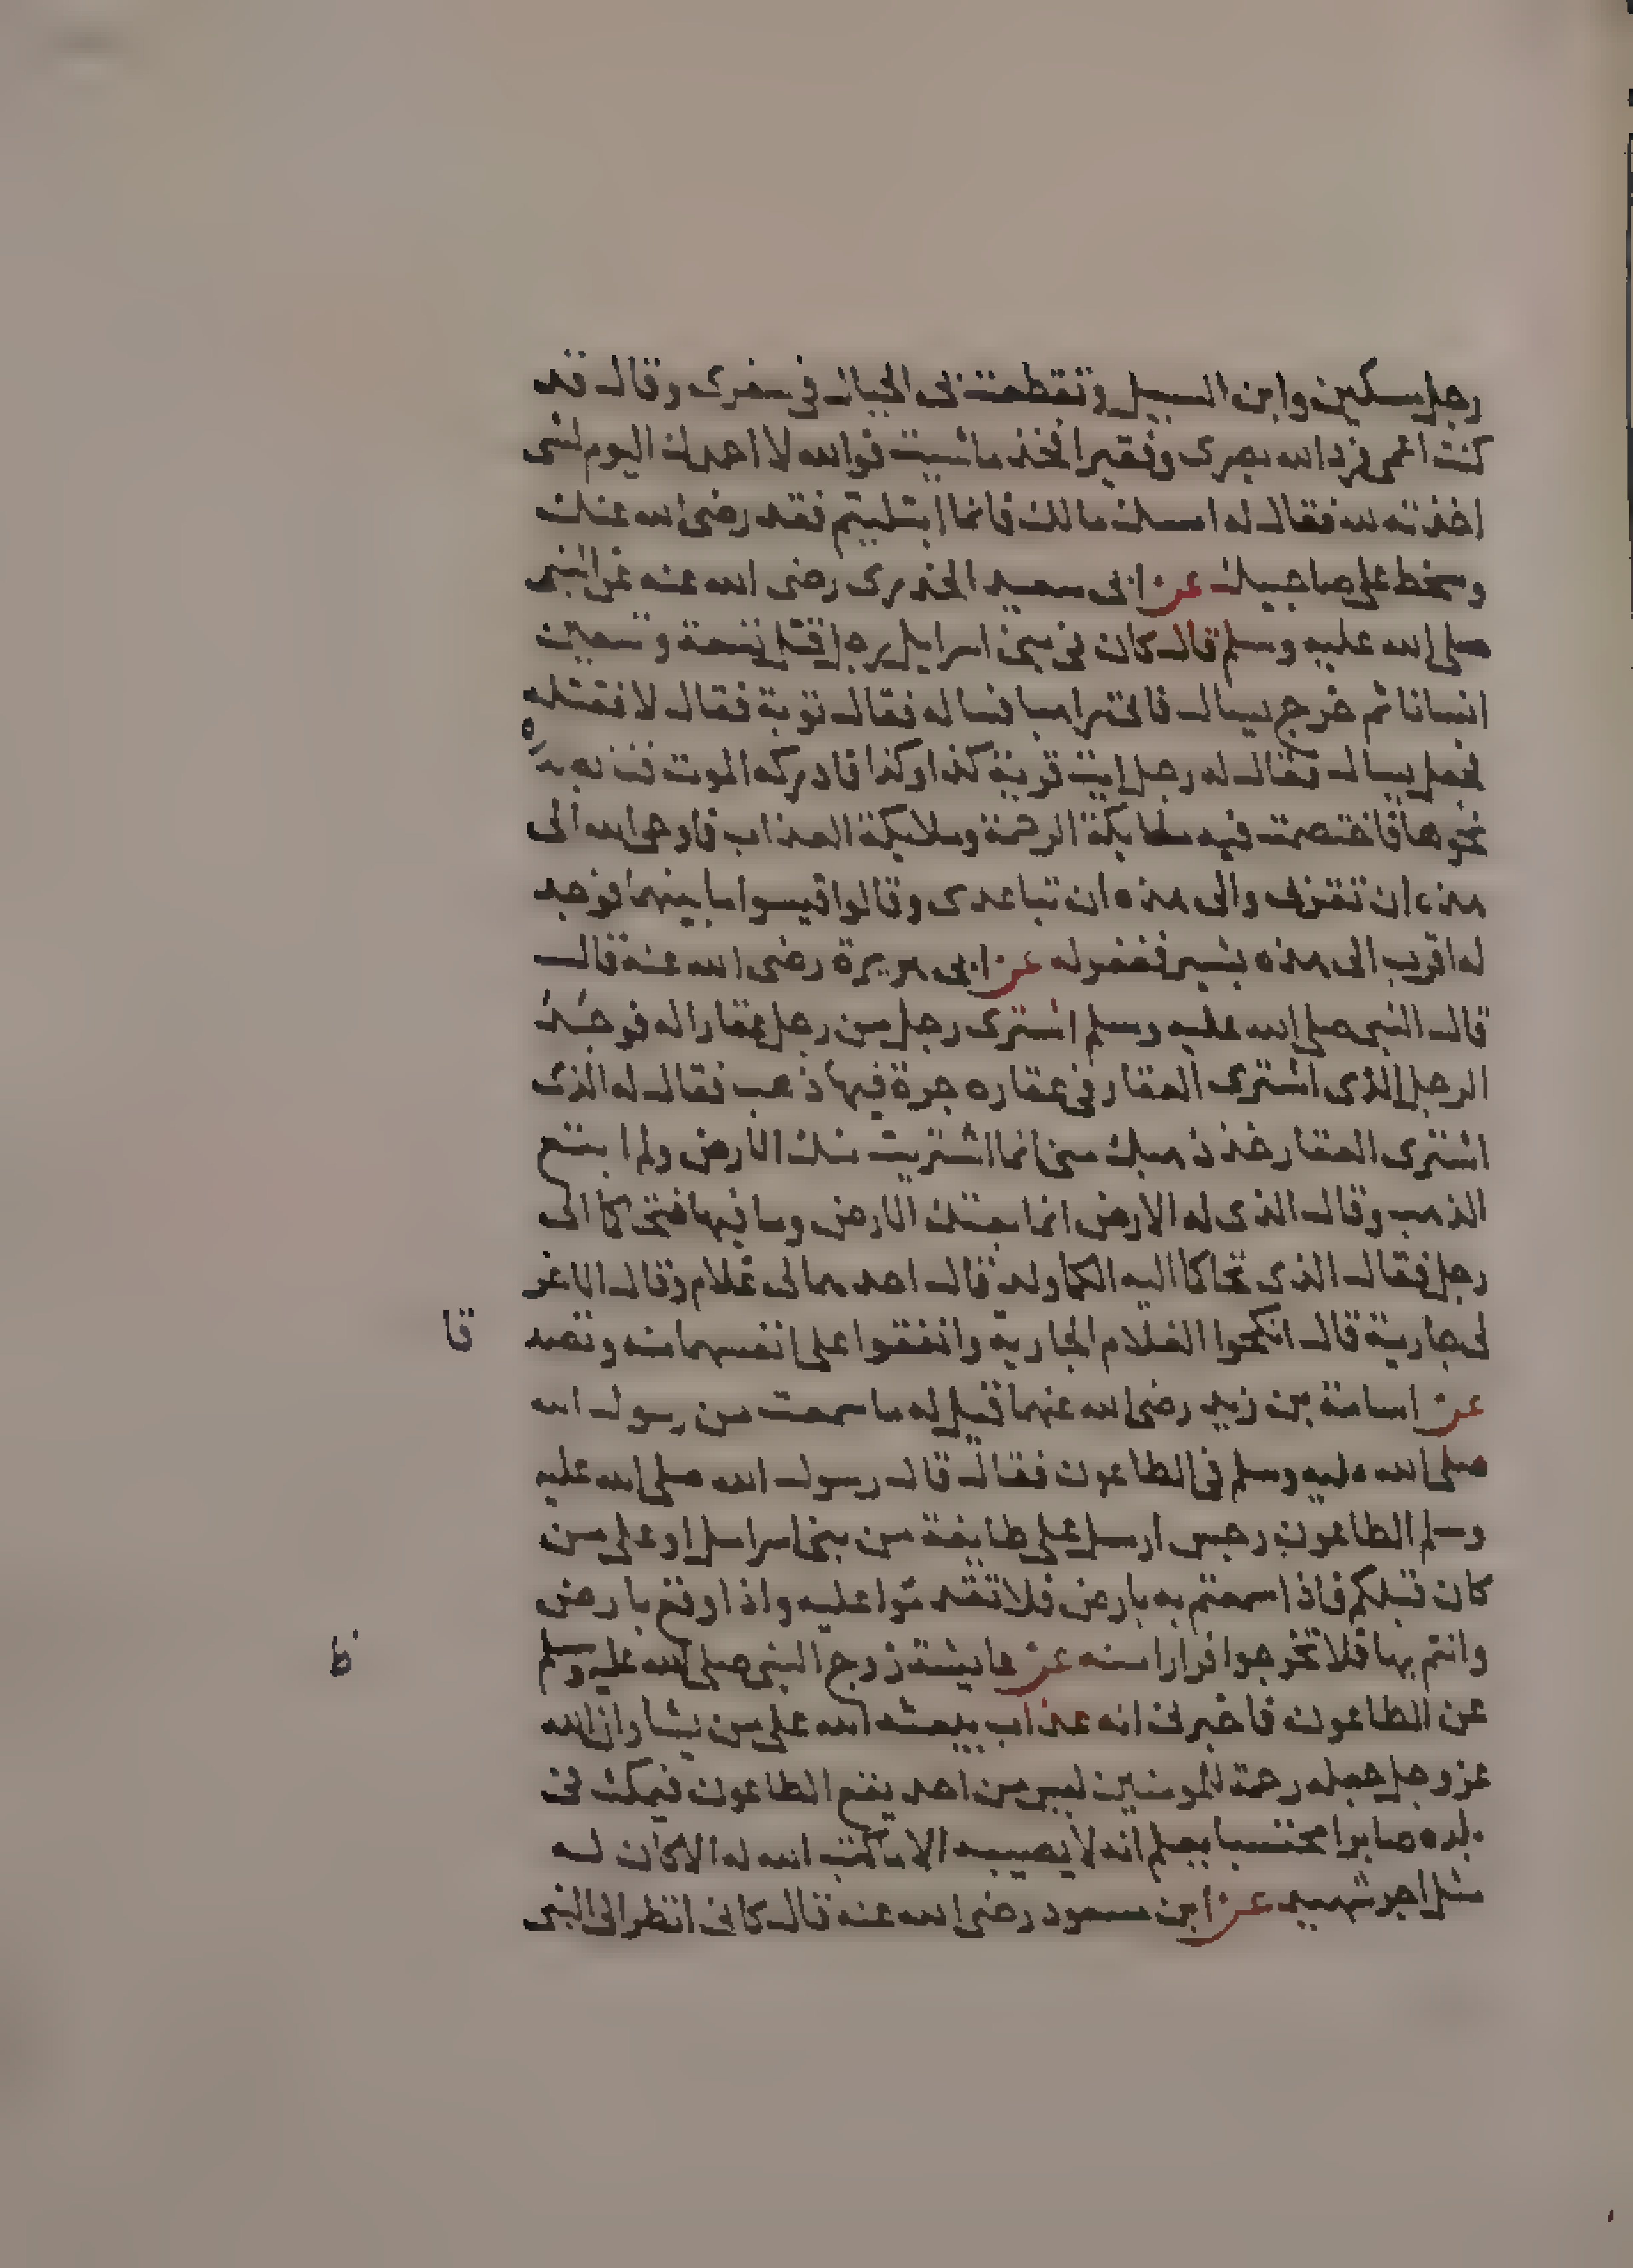 رجل مسكين وابن السبيل وتقطعت بى الحبال في سفرى وقال قد
كنت اعمى فرد الله بصرى وفقيرا فخذ ما شيت فوالله لا احمدك اليوم لشى
اخذته لله فقال له امسك مالك فانما ابتليتم فقد رضى الله عنك
وسخط على صاحبيك عن ابى سعيد الخدرى رضى الله عنه عن النبى
صلى الله عليه وسلم قال كان فى بنى اسرايل رجل قتل تسعة وتسعين
انسانا ثم خرج يسال فاتى راهبا فساله فقال توبة فقال لا فقتله
فجعل يسال فقال له رجل ايت قرية كذا وكذا فادركه الموت فناء بصدره
نحوها فاختصمت فيه ملايكة الرحمة وملايكة العذاب فاوحى الله الى
هذه ان تقربى والى هذه ان تباعدى وقالوا قيسوا ما بينهما فوجد
له اقرب الى هذه بشبر فغفر له عن ابى هريرة رضى الله عنه قال
قال النبى صلى الله عليه وسلم اشترى رجل من رجل عقارا له فوجد
الرجل الذى اشترى العقار فى عقاره جرة فيها ذهب فقال له الذى
اشترى العقار خذ ذهبك منى انما اشتريت منك الارض ولم ابتع
الذهب وقال الذى له الارض انما بعتك الارض وما فيها فتحاكما الى
رجل فقال الذى تحاكما اليه الكما ولد قال احدهما لى غلام وقال الاخر
لى جارية قال انكحوا الغلام الجارية وانفقوا على انفسهما منه وتصد
قا
عن اسامة بن زيد رضى الله عنهما قيل له ما سمعت من رسول الله
صلى الله عليه وسلم فى الطاعون فقال قال رسول الله صلى الله عليه
وسلم الطاعون رجس ارسل على طايفة من بنى اسرايل او على من
كان قبلكم فاذا سمعتم به بارض فلا تقدموا عليه واذا وقع بارض
وانتم بها فلا تخرجوا فرارا منه عن عايشة زوج النبى صلى الله عليه وسلم
عن الطاعون فاخبرنى انه عذاب يبعثه الله على من يشا وان الله
عز وجل جعله رحمة للمومنين ليس من احد يقع الطاعون فيمكث فى
بلده صابرا محتسبا يعلم انه لا يصيبه الا ما كتب الله له الا كان له
مثل اجر شهيد عن ابن مسعود رضى الله عنه قال كانى انظر الى النبى